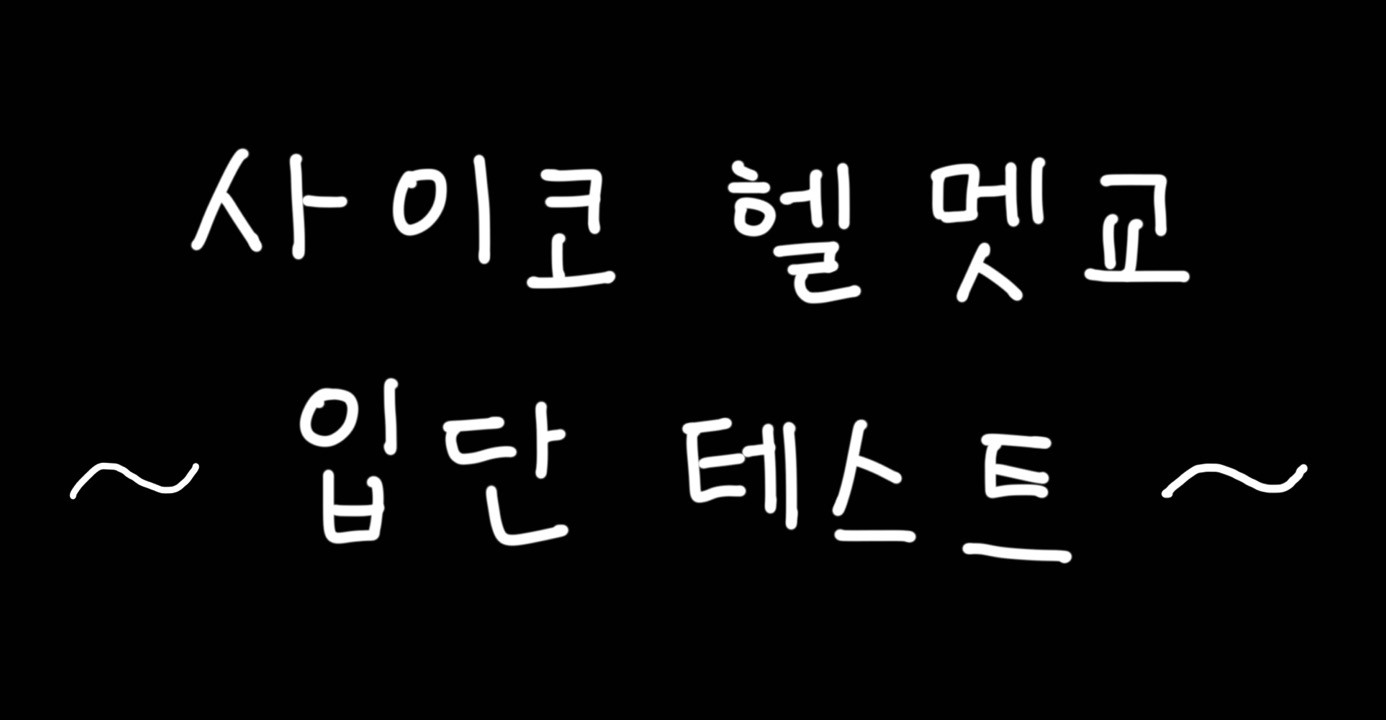 사이코 헬멧교
~ 입단 테스트 ~